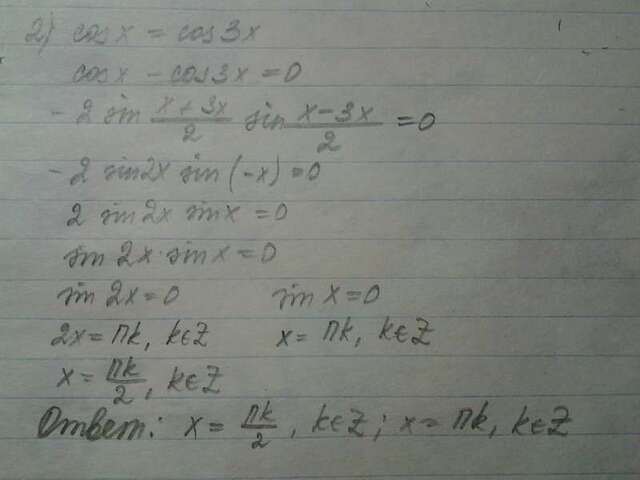 2) cos x = cos 3x
cos x - cos 3x = 0
- 2 sin (x + 3x)/2 sin (x - 3x)/2 = 0
- 2 sin 2x sin (-x) = 0
2 sin 2x sin x = 0
sin 2x · sin x = 0
sin 2x = 0 sin x = 0
2x = πk, k∈Z x = πk, k∈Z
x = πk/2, k∈Z
Ответ: x = πk/2, k∈Z; x = πk, k∈Z